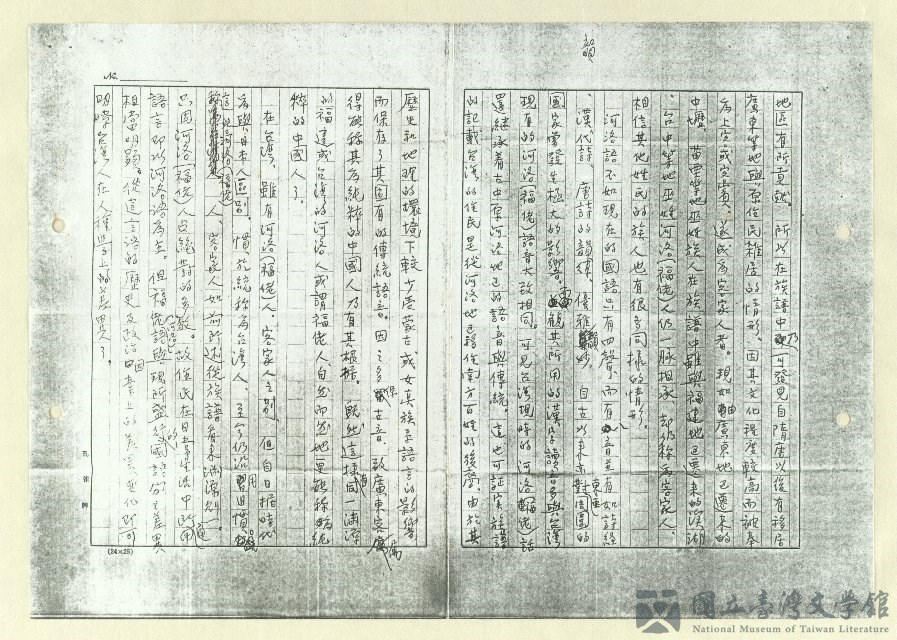 地區有所貢獻。所以在族譜中乃可發見自隋唐以後有移居
廣東等地與原住民雜居的情形。因其文化程度較高而被奉
為上客或客賓、遂成為客家人者。現如由廣東地已遷來的
中壢、苗栗等地巫姓族人在族譜中雖與福建地已遷來的溪湖
、台中等地巫姓河洛(福佬)人仍一脈相承、卻仍稱為客家人。
相信其他姓氏的族人也有很多同樣的情形。
河洛語不如現在的國語只有四聲、而有八音並有如詩經
、漢代詩、唐詩的韻律、優雅 妙、自古以來東亞對周圍的
國家嘗發生極大的影響。 觀其所用的漢字讀音多與台灣
現有的河洛(福佬)語音大致相同。可見台灣現時的河洛(福佬)話
還繼承着古中原河洛地已的語音與傳統。這也可証實族譜
的記載台灣的住民是從河洛地已移住南方百姓的後裔、由於其
歷史和地理的環境下較少受蒙古或女真族系語言的影響
而保存了其固有的傳統語言。因之多保 古音。故廣東客屬
得能稱其為純粹的中國人乃有其根據。既然這樣同一淵源
的福建或台灣的河洛人或謂福佬人自然而然地更能稱為純
粹的中國人了。
在台灣、雖有河洛(福佬)人、客家人之別、但自日據時代
為與日本人區別、慣於統稱為台灣人。至今仍沿用習慣
人、客家人如前所述從族譜看來淵源
只因河洛(福佬)人占絕對的多數。故住民在日常生活中所用
語言即以河洛語為主。但福佬語與現所盛行的國語分之差異
相當明顯。從這言語的歷史及政治因素上的差異
明瞭台灣人在人種學上的差異了。
No.
孔雀牌
(24×25)
國立臺灣文學館
National Museum of Taiwan Literature